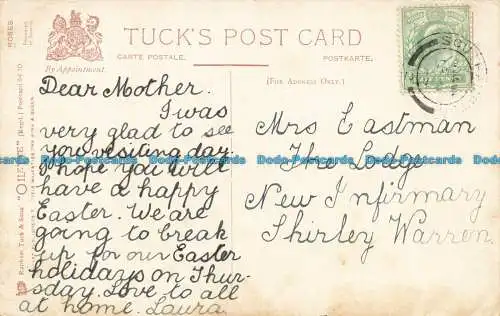 TUCK'S POST CARD
CARTE POSTALE.
POSTKARTE.
By Appointment.
(FOR ADDRESS ONLY.)
Dear Mother.
I was
very glad to see
you visiting day.
I hope you will
have a happy
Easter. We are
going to break
up for our Easter
holidays on Thur-
sday. Love to all
at home. Laura.
Mrs Eastman
The Lodge
New Infirmary
Shirley Warren
ROSES.
Raphael Tuck & Sons' "OILETTE" (Regd.) Postcard
Dodo-Postcards Dodo-Postcards Dodo-Postcards Dodo-Postcards Dodo-Postcards